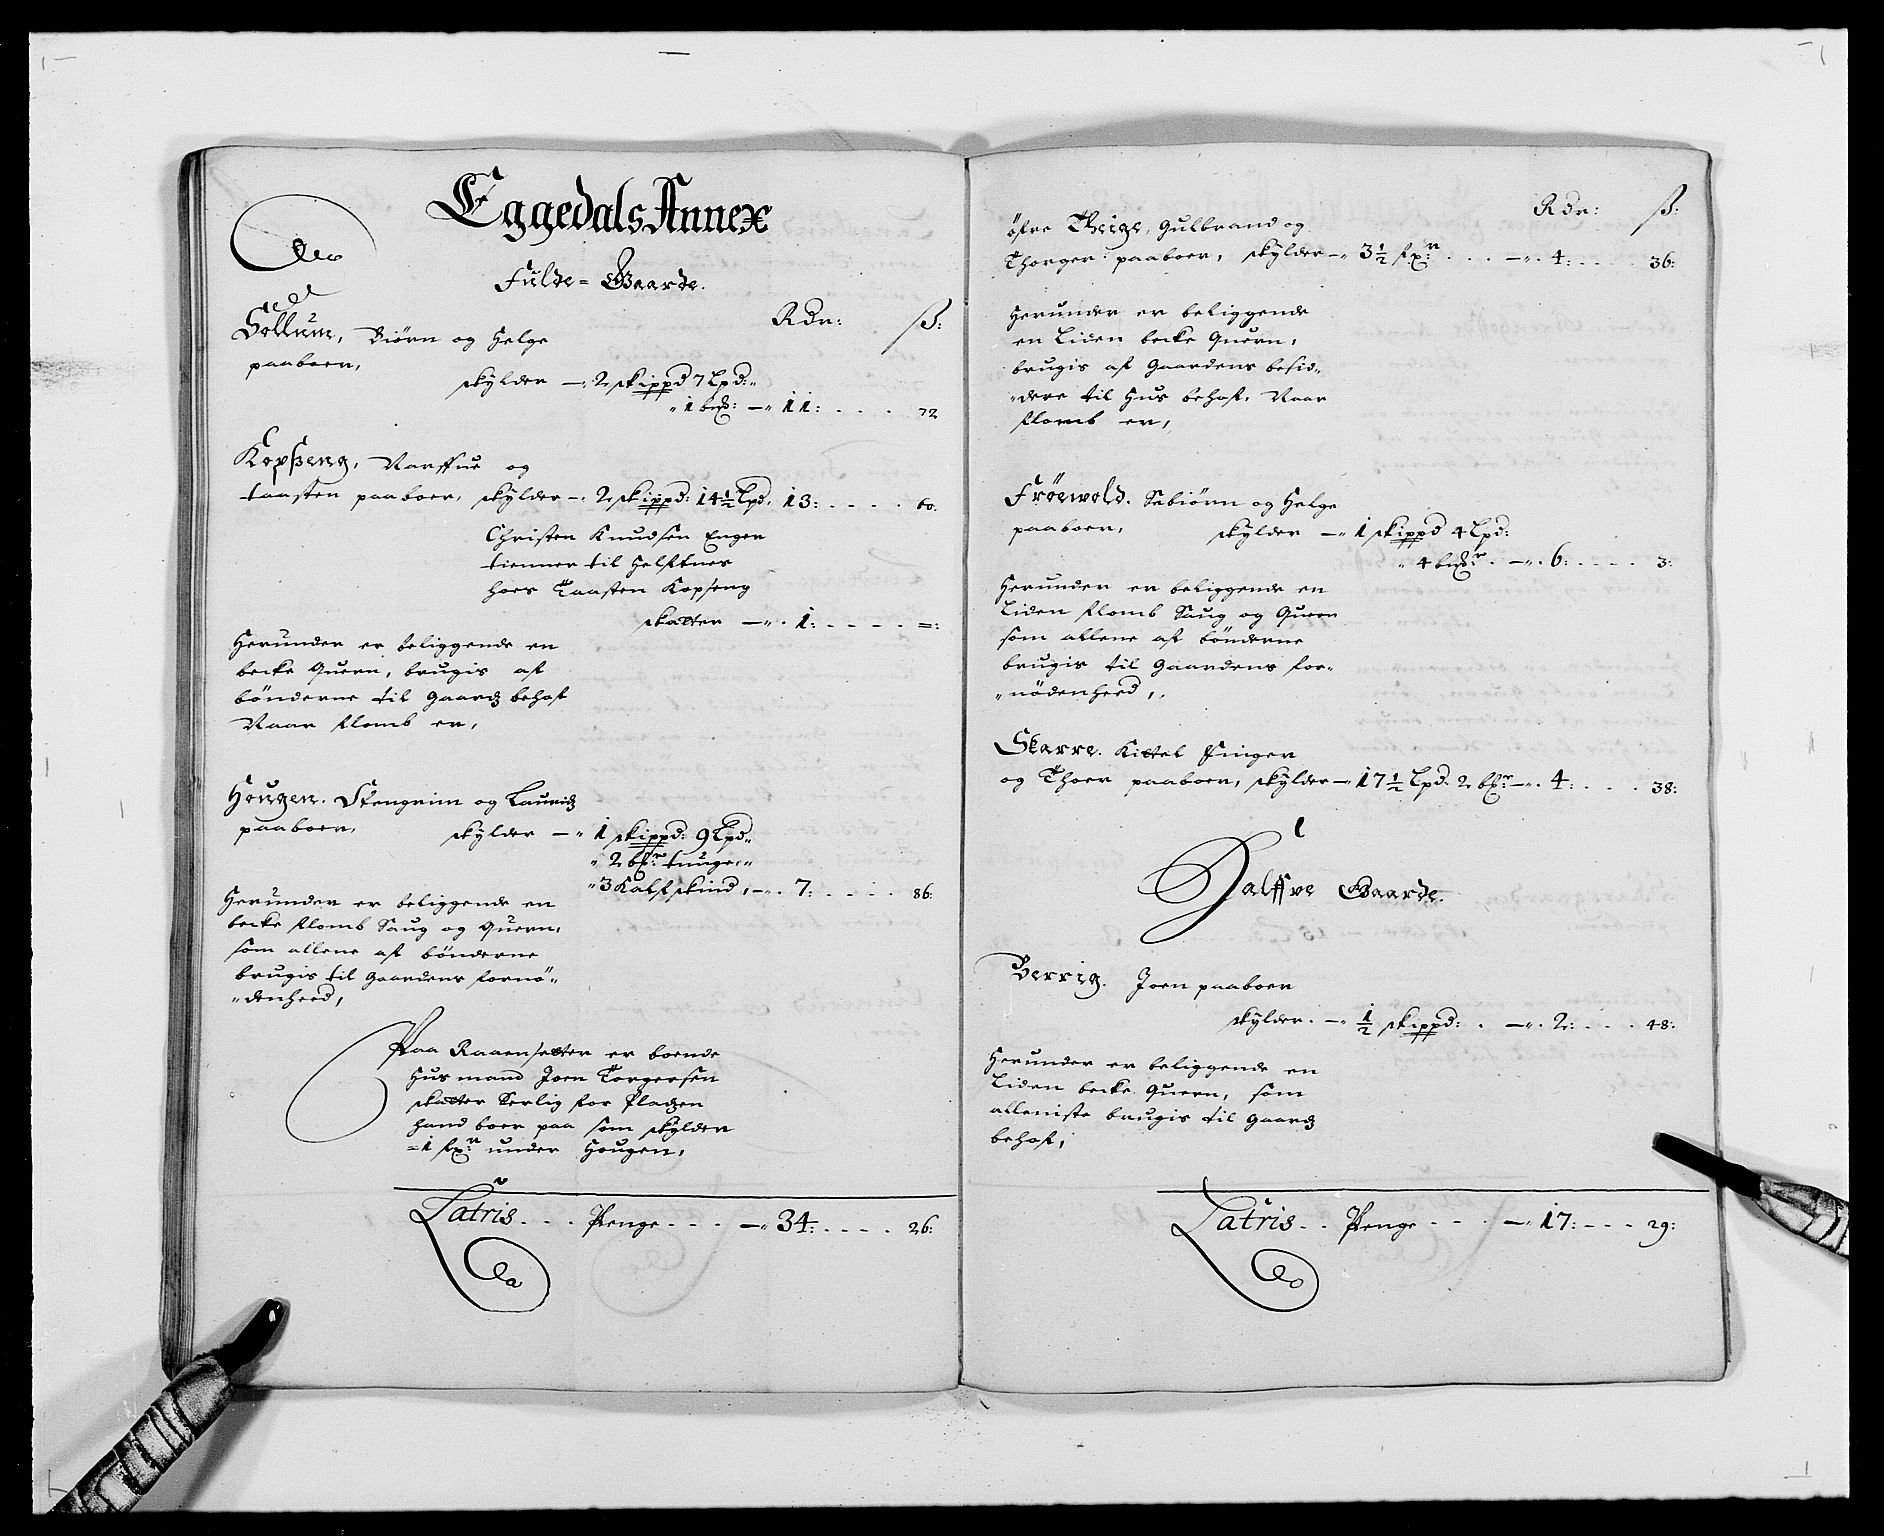 Eggedals Annex
Fulde= Gaarde.
Rdr: ß:
Sollum, Biörn og Helge
paaboer,
skylder —. 2 skippd 7 Lpd:
1 bx̃: —" 11: . . . . 72
Kopseng, Narffue og
taasten paaboer, skylder —. 2 skippd: 14½ Lpd. 13: . . . . 60.
Christen Knudsen Enger
tienner til Helfftnes
hoes Taasten Kopseng
skatter —". 1: . . . . . =:
Herunder er beliggende en
becke Quern, brugis aff
bönderne til Gaardz behoff
Naar flomb er,
Hougen. Stengrim og Lauridz
paaboer, skylder —" 1 skippd: 9 Lpd
" 2 bx̃r: tunge:
" 3 Kalfskind, —". 7: . . . . 86:
Herunder er beliggende en
becke flomb Saug og Quern,
som allene aff bönderne
brugis til Gaardens fornö=
=denheed,
Paa Raaensetter er boende
Husmand Joen Torgersen
skatter Serlig for Pladzen
hand boer paa som skylder
=1 fx̃r: under Hougen,
Latris . . . Penge . . . —" 34: . . . . 26:
Rdr: ß:
öfre Theige, Gulbrand og
Thorger paaboer, skylder —" 3½ fx̃r: . . . —". 4: . . . . 36:
Herunder er beliggende
en Liden becke Quern,
brugis aff Gaardens besid=
=dere til Hus behoff, Naar
flomb er,
Fröewold. Sebiörn og Helge
paaboer, skylder —" 1 skippd 4 Lpd:
" 4 bx̃r: . —". 6: . . . . 3:
Herunder er beliggende en
Liden flomb Saug og Quern
som allene aff bönderne
brugis til Gaardens for=
=nödenheed,
Skarre. Kittel Finger
og Thoer paaboer, skylder —" 17½ Lpd. 2 bx̃r: —". 4: . . . . 38:
Halffve Gaarde.
Berrig. Joen paaboer
skylder. —" ½ skippd: . —". 2: . . . 48:
Herunder er beliggende en
Liden becke Quern, som
alleniste brugis til Gaardz
behoff,
Latris . . Penge . . . —" 17: . . . 29: